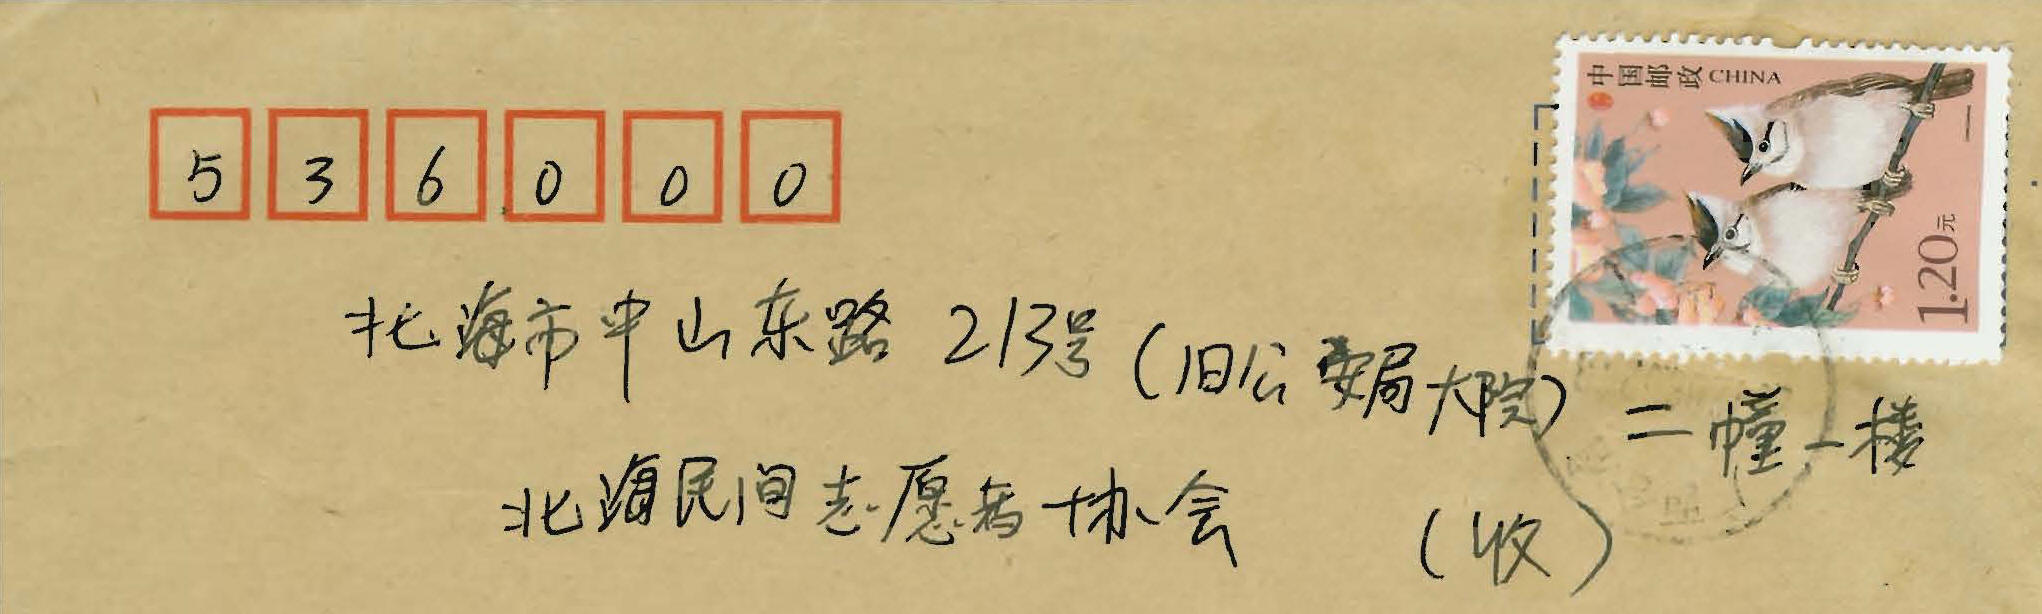 中国邮政 CHINA
1.20元
536000
北海市中山东路 213号（旧公安局大院）二幢一楼
北海民间志愿者协会 （收）